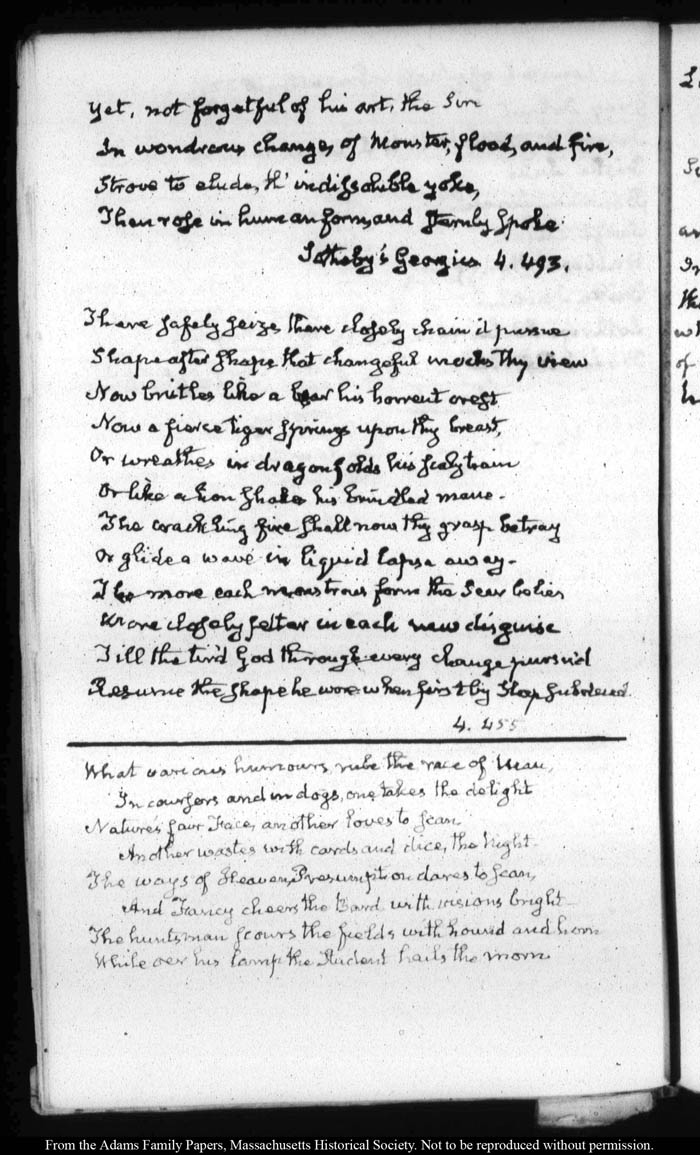 Yet, not forgetful of his art, the Sire
In wondrous changes of Monster, flood, and fire,
Strove to elude, th' indissoluble yoke,
Then rose in human form, and sternly spoke
Sotheby's Georgics 4. 493.
There safely seize, there closely chain'd pursue
Shape after shape, that changeful mocks thy view
Now bristles like a boar his horrent crest
Now a fierce tiger springs upon thy breast,
Or wreathes in dragon folds his scaly train
Or like a lion shakes his brindled mane.
The crackling fire shall now thy grasp betray
Or glide a wave in liquid lapse away.
The more each monstrous form the Seer belies
More closely fetter in each new disguise
Till the tir'd God through every change pursu'd
Resume the shape he wore when first by Sleep subdued.
4. 455
What various humours, rule the race of Man,
In coursers and in dogs, one takes the delight
Nature's fair Face, another loves to scan
Another wastes with cards and dice, the night.
The ways of Heaven, Presumption dares to scan,
And Fancy cheers the Bard with visions bright
The huntsman scours the fields with hound and horn
While oer his lamp the Student hails the morn
From the Adams Family Papers, Massachusetts Historical Society. Not to be reproduced without permission.